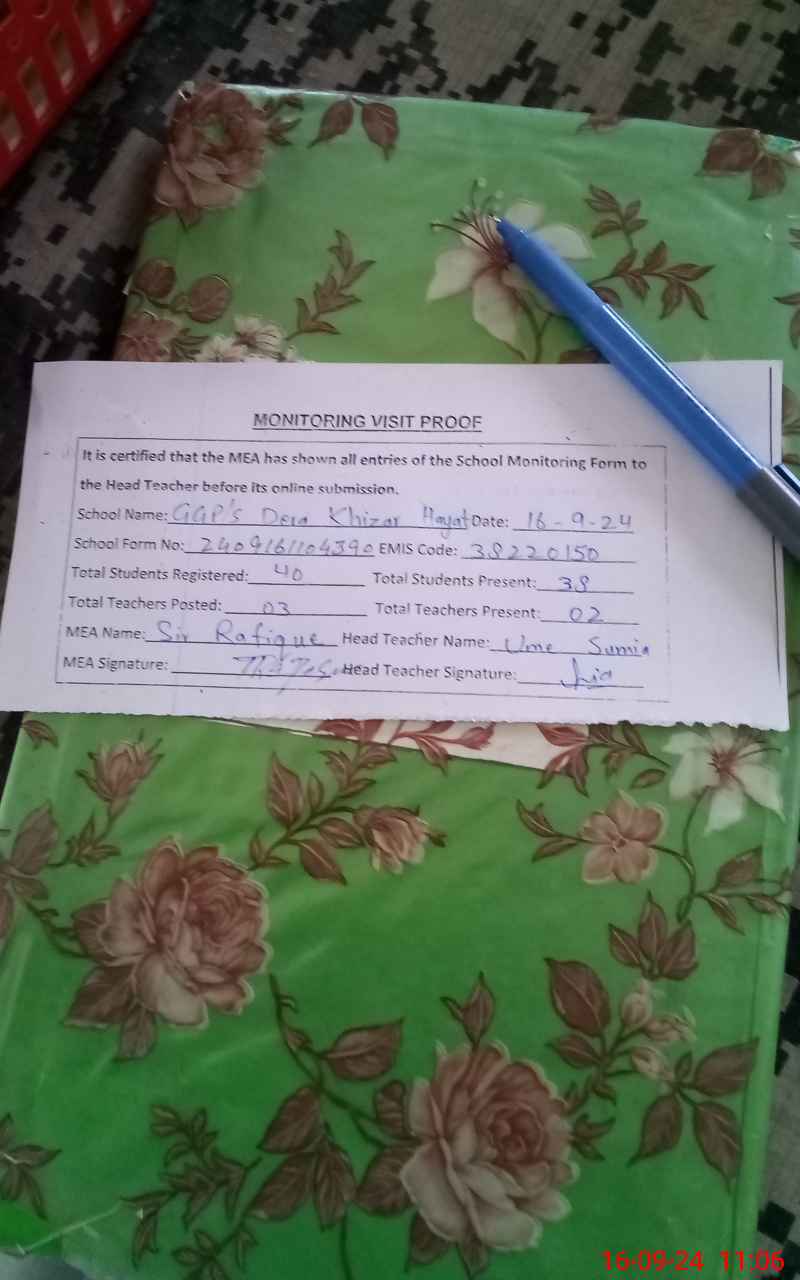 MONITORING VISIT PROOF
It is certified that the MEA has shown all entries of the School Monitoring Form to
the Head Teacher before its online submission.
School Name: GGP's Dera Khizar Hayat Date: 16-9-24
School Form No: 2409161104390 EMIS Code: 38220150
Total Students Registered: 40 Total Students Present: 38
Total Teachers Posted: 03 Total Teachers Present: 02
MEA Name: Sir Rafique Head Teacher Name: Ume Sumia
MEA Signature: Head Teacher Signature:
16-09-24 11:06